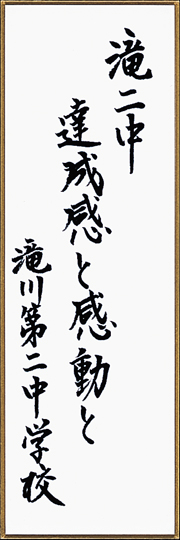 滝二中
達成感と感動と
滝川第二中学校